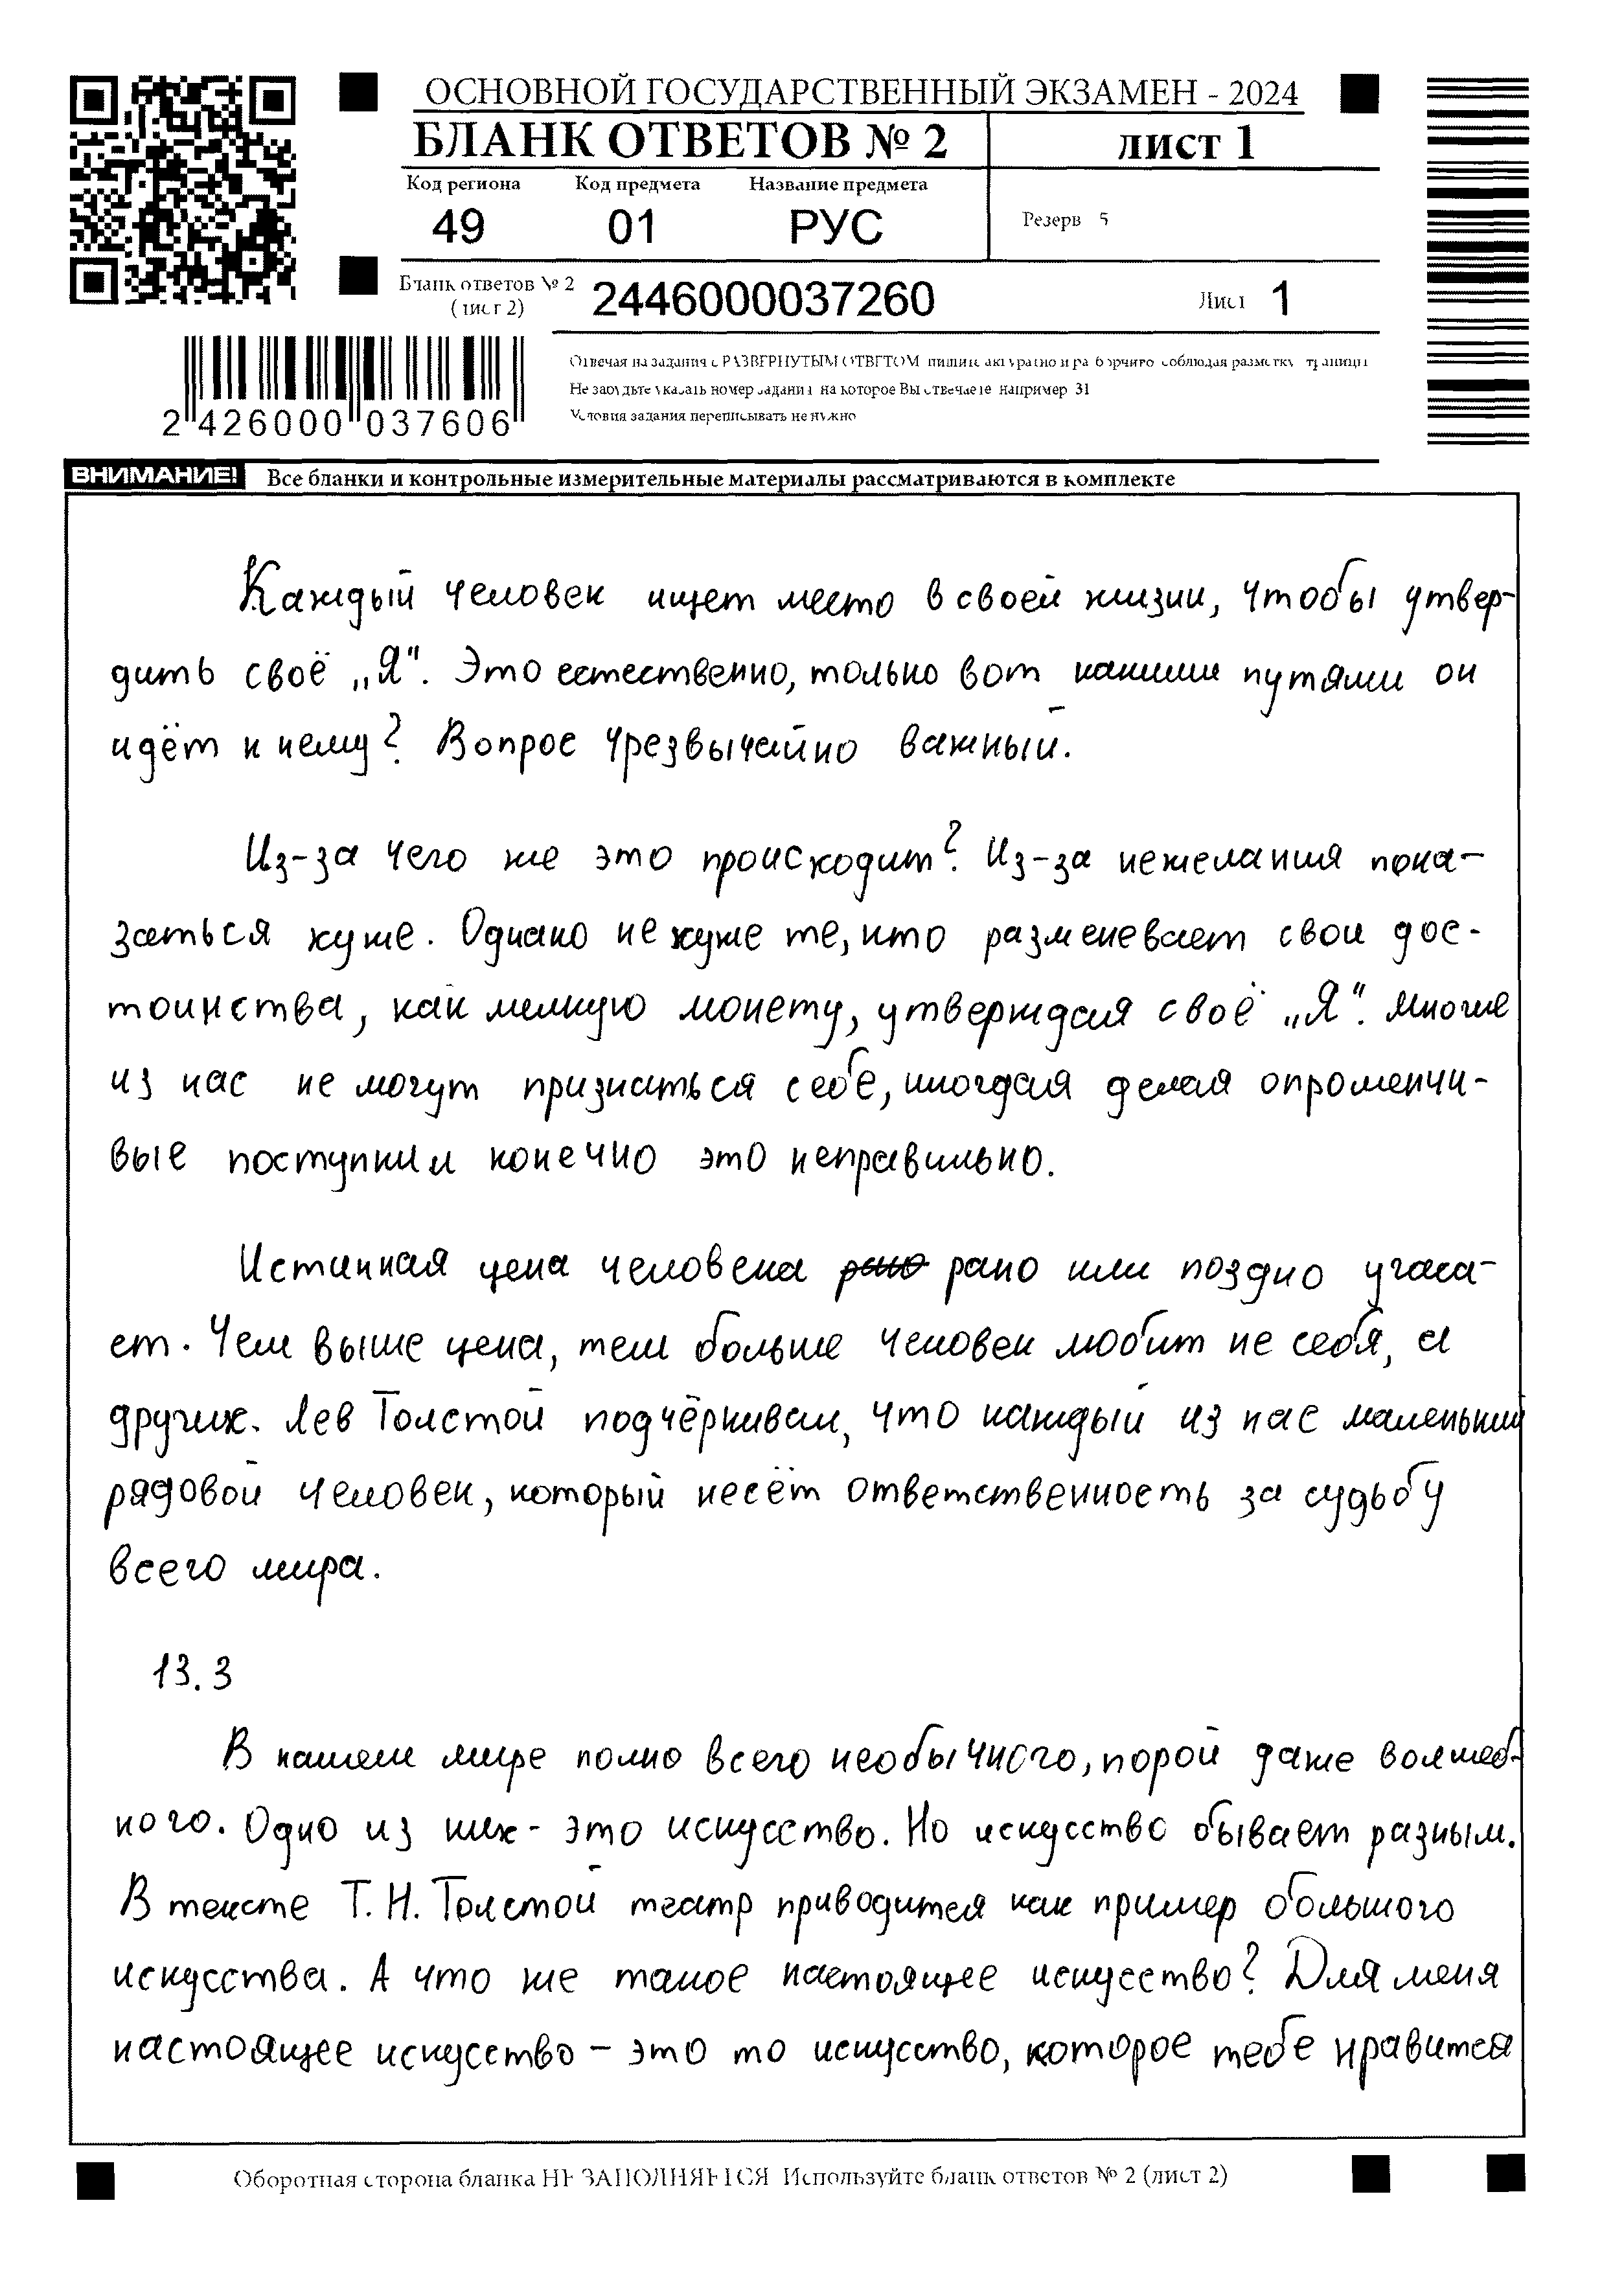 ОСНОВНОЙ ГОСУДАРСТВЕННЫЙ ЭКЗАМЕН - 2024
БЛАНК ОТВЕТОВ № 2
лист 1
Код региона Код предмета Название предмета
49 01 РУС
Резерв 5
Бланк ответов № 2
(лист 2)
2446000037260
Лист 1
Отвечая на задания с РАЗВЕРНУТЫМ ОТВЕТОМ пишите аккуратно и разборчиво соблюдая разметку страницы
Не забудьте указать номер задания на которое Вы отвечаете например 31
Условия задания переписывать не нужно
2 426000 037606
ВНИМАНИЕ! Все бланки и контрольные измерительные материалы рассматриваются в комплекте
Каждый человек ищет место в своей жизни, чтобы утвер-
дить своё „Я“. Это естественно, только вот какими путями он
идёт к нему? Вопрос чрезвычайно важный.
Из-за чего же это происходит? Из-за нежелания пока-
заться хуже. Однако не хуже те, кто разменевает свои дос-
тоинства, как мелкую монету, утверждая своё „Я“. Многие
из нас не могут признаться себе, иногдая делая опроменчи-
вые поступки и конечно это неправильно.
Истинная цена человека рано рано или поздно угаса-
ет. Чем выше цена, тем больше человек любит не себя, а
других. Лев Толстой подчёркивал, что каждый из нас маленький
рядовой человек, который несёт ответственность за судьбу
всего мира.
13.3
В нашем мире полно всего необычного, порой даже волшеб-
ного. Одно из них - это искусство. Но искусство бывает разным.
В тексте Т. Н. Толстой театр приводится как пример большого
искусства. А что же такое настоящее искусство? Для меня
настоящее искусство – это то искусство, которое тебе нравится
Оборотная сторона бланка НЕ ЗАПОЛНЯЕТСЯ Используйте бланк ответов № 2 (лист 2)